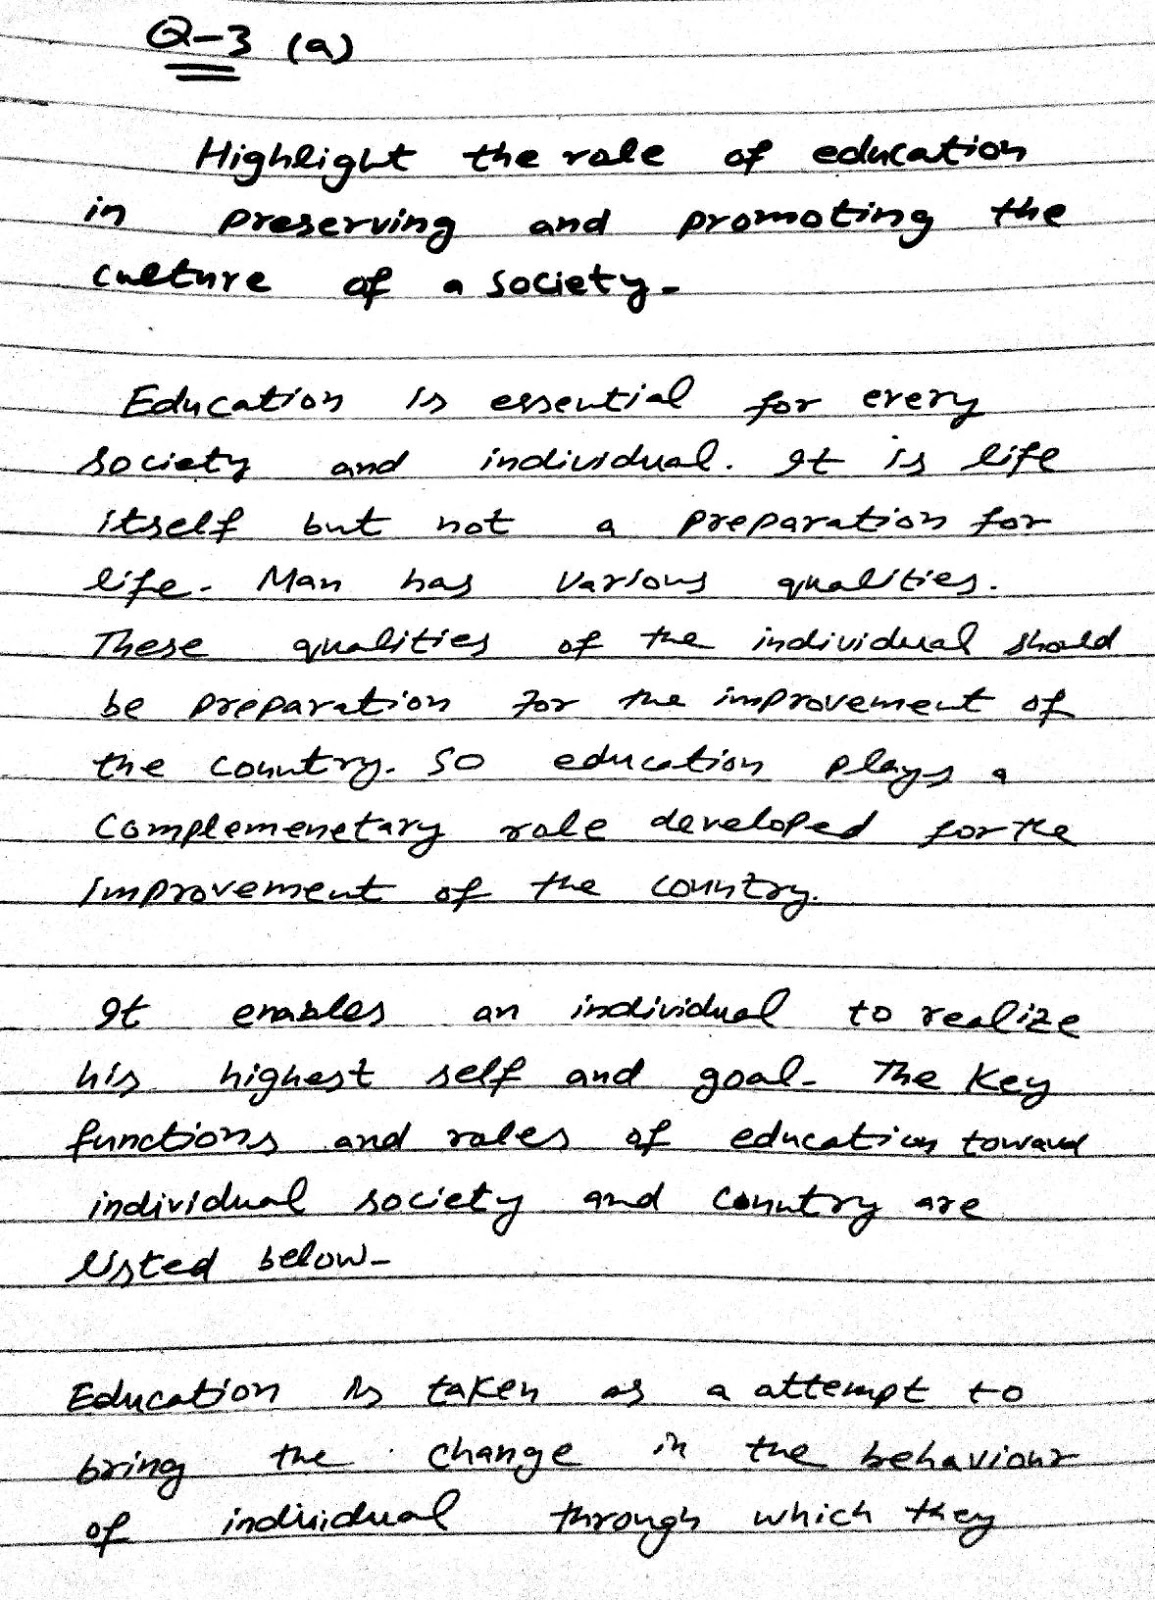 Q-3 (a)
Highlight the role of education
in preserving and promoting the
culture of a society.
Education is essential for every
society and individual. It is life
itself but not a preparation for
life. Man has various qualities.
These qualities of the individual should
be preparation for the improvement of
the country. So education plays a
complemenetary role developed for the
improvement of the country.
It enables an individual to realize
his highest self and goal. The key
functions and roles of education toward
individual society and country are
listed below-
Education is taken as a attempt to
bring the change in the behaviour
of individual through which they